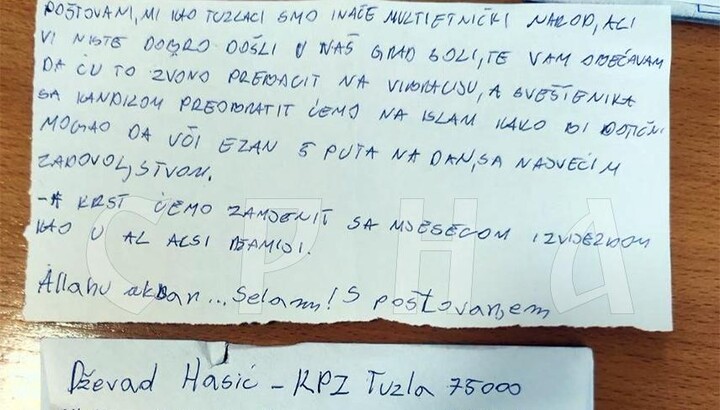 POŠTOVANI, MI KAO TUZLACI SMO INAČE MULTIETNIČKI NAROD, ALI
VI NISTE DOBRO DOŠLI U NAŠ GRAD SOLI, TE VAM OBJEĆAVAM
DA ĆU TO ZVONO PREBACIT NA VIBRACIJU, A SVEŠTENIKA
SA KANDILOM PREOBRATIT ĆEMO NA ISLAM KAKO BI DOTIČNI
MOGAO DA UČI EZAN 5 PUTA NA DAN, SA NAJVEĆIM
ZADOVOLJSTVOM.
-A KRST ĆEMO ZAMJENIT SA MJESECOM I ZVIJEZDOM
KAO U AL AKSI DŽAMIJI.
Allahu akbar... Selam! S poštovanjem
СРНА
Dževad Hasić - KPZ Tuzla 75000